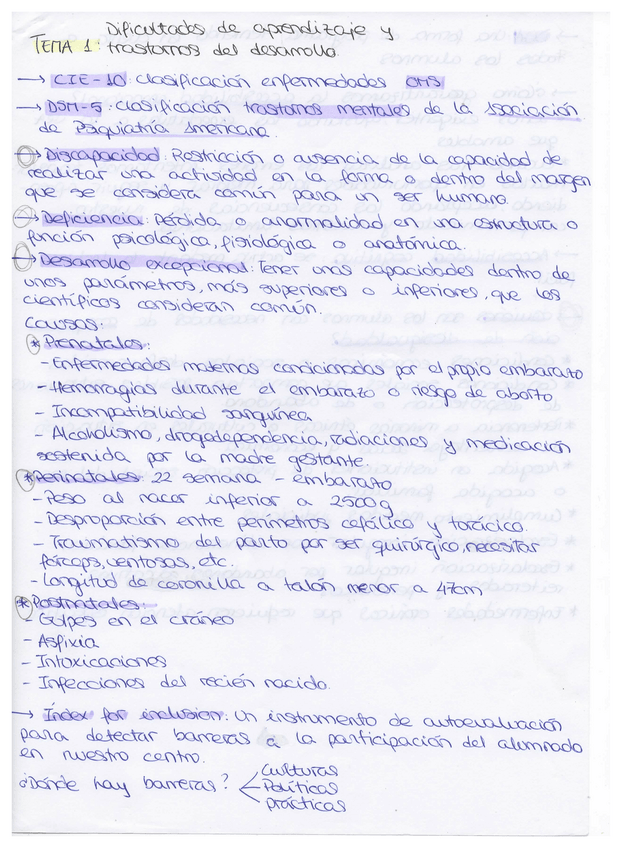 Dificultades de aprendizaje y
TEMA 1: trastornos del desarrollo.
→ CIE-10: Clasificación enfermedades OMS
→ DSM-5: Clasificación trastornos mentales de la Asociación
de Psiquiatría Americana.
→ Discapacidad: Restricción o ausencia de la capacidad de
realizar una actividad en la forma o dentro del margen
que se considera común para un ser humano.
→ Deficiencia: Pérdida o anormalidad en una estructura o
función psicológica, fisiológica o anatómica.
→ Desarrollo excepcional: Tener unas capacidades dentro de
unos parámetros, más superiores o inferiores, que los
científicos consideran común.
Causas:
* Prenatales:
- Enfermedades maternas condicionadas por el propio embarazo
- Hemorragias durante el embarazo o riesgo de aborto
- Incompatibilidad sanguínea
- Alcoholismo, drogodependencia, radiaciones y medicación
sostenida por la madre gestante.
* Perinatales: 22 semana - embarazo
- Peso al nacer inferior a 2500g
- Desproporción entre perímetros cefálico y torácico.
- Traumatismo del parto por ser quirúrgico, necesitar
fórceps, ventosas, etc.
- Longitud de coronilla a talón menor a 47cm
* Postnatales:
- Golpes en el cráneo
- Asfixia
- Intoxicaciones
- Infecciones del recién nacido.
→ Índex for inclusion: Un instrumento de autoevaluación
para detectar barreras a la participación del alumnado
en nuestro centro.
¿Dónde hay barreras? < Culturas
Políticas
prácticas